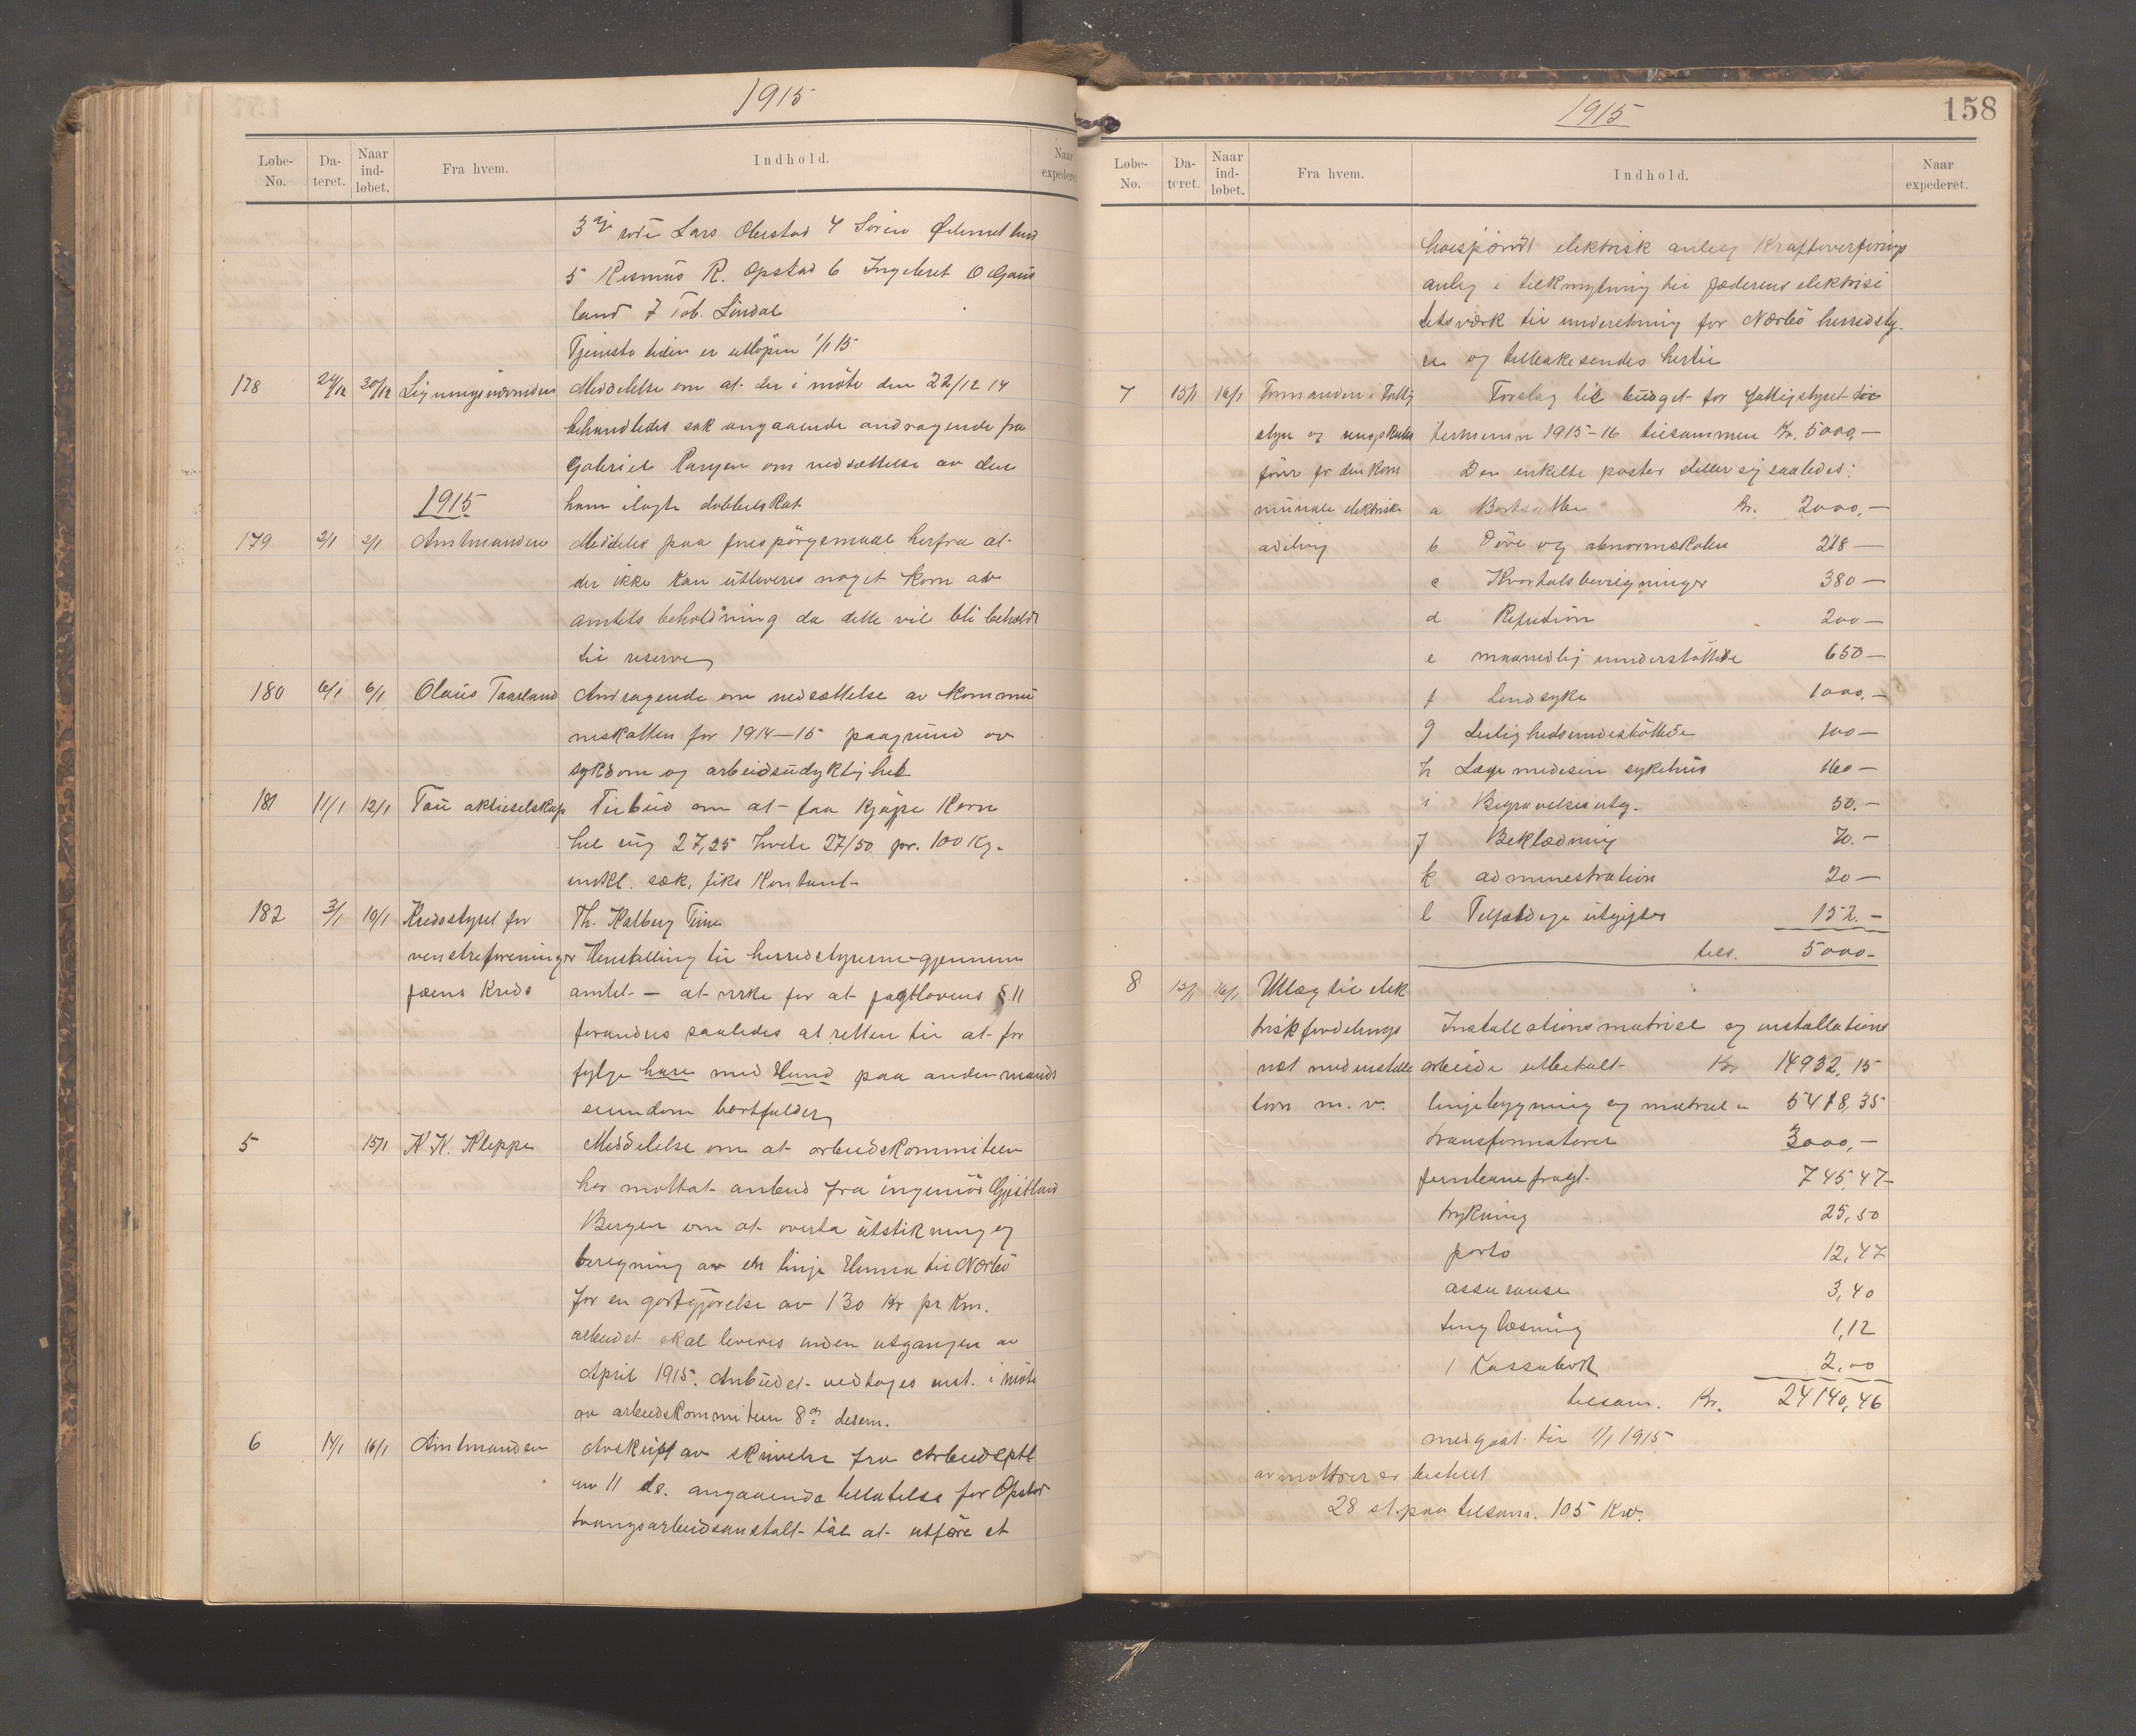 1915
Løbe-No. Da-teret. Naar ind-løbet. Fra hvem. Indhold. Naar expederet.
Lars Obrestad 4 Sören
5 Rasmus R. Opstad 6 Ingebret O Gaus
land 7 Tob. Lindal
Tjeneste tiden er utlöpen 1/1 15
178 29/12 30/12 Ligningsnævnden Meddelelse om at der i möte den 22/12 14
behandledes sak angaaende andragende fra
Gabriel om nedsættelse av den
1915 ham ilagte dobbeltskat
179 2/1 2/1 Amtmanden Meddeles paa forespörgsmaal herfra at
der ikke kan utleveres noget korn av
amtets beholdning da dette vil bli beholdt
til reserve
180 6/1 6/1 Olaus Taarland Andragende om nedsættelse av kommu
neskatten for 1914–15 paagrund av
sykdom og arbeidsudyktighet
181 11/1 12/1 Tau aktieselskap Tilbud om at faa kjöpe korn
hel rug 27,25 hvete 27/50 pr. 100 Kg.
inkl. sæk, fiks Kontant
182 3/1 19/1 Kredsstyret for Th. Kalberg Time
venstreforeninger Henstilling til herredstyrerne gjennem
jæens Kreds amtet — at virke for at jagtlovens § 11
forandres saaledes at retten til at for
fylge hare med Hund paa anden mands
eiendom bortfalder
5 15/1 K. K. Kleppe Meddelelse om at arbeidskommiteen
har mottat anbud fra ingeniör
Bergen om at overta utstikning og
beregning av en linje Homa til Nærbö
for en godtgjörelse av 130 Kr pr Km.
arbeidet skal leveres inden utgangen av
April 1915. Anbudet vedtages enst. i möte
av arbeidskommiteen 8de desem.
6 14/1 16/1 Amtmanden Avskrift av skrivelse fra Arbeidsdptt
av 11 ds. angaaende tillatelse for Opstad
tvangsarbeidsanstalt til at utföre et
1915
158
Løbe-No. Da-teret. Naar ind-løbet. Fra hvem. Indhold. Naar expederet.
höispændt elektrisk anlæg Kraftoverförings
anlæg i tilknytning til Jæderens elektrisi
tetsværk til underretning for Nærbö herredsty.
re og tilbakesendes hertil
7 15/1 16/1 Formanden i Fattig Forslag til budget for fattigstyret for
styre og regnskaps terminen 1915–16 tilsammen Kr. 5000,—
förer for den kom Den enkelte poster stiller sig saaledes:
munale elektriske a Bortsatte Kr. 2000,—
avdeling b Döve og abnormskolen 218 —
c Kvartalsbevilgninger 380 —
d Refusion 200 —
e maanedlig understöttelse 650 —
f Sindsyke 1000.—
g Leilighedsunderstöttelse 100 —
h Læge medesin sykehus 160 —
i Begravelsesutg. 50.—
j Beklædning 70.—
k administration 20 —
l Tilfældige utgifter 152.—
tils. 5000-
8 15/1 16/1 Utlæg til elek
trisk fordelings Installationsmatriel og installations
net med installa arbeide utbetalt Kr 14932,15
tion m. v. linjebygning og matriel " 5418,35
transformatorer 3000,—
jernbane fragt 745,47
trykning 25,50
porto 12,47
assuranse 3,40
tinglæsning 1,12
1 Kassabok 2,00
tilsam. Kr. 24140,46
medgaat til 1/1 1915
av mottorer er bestilt
28 st. paa tilsam. 105 Kw.